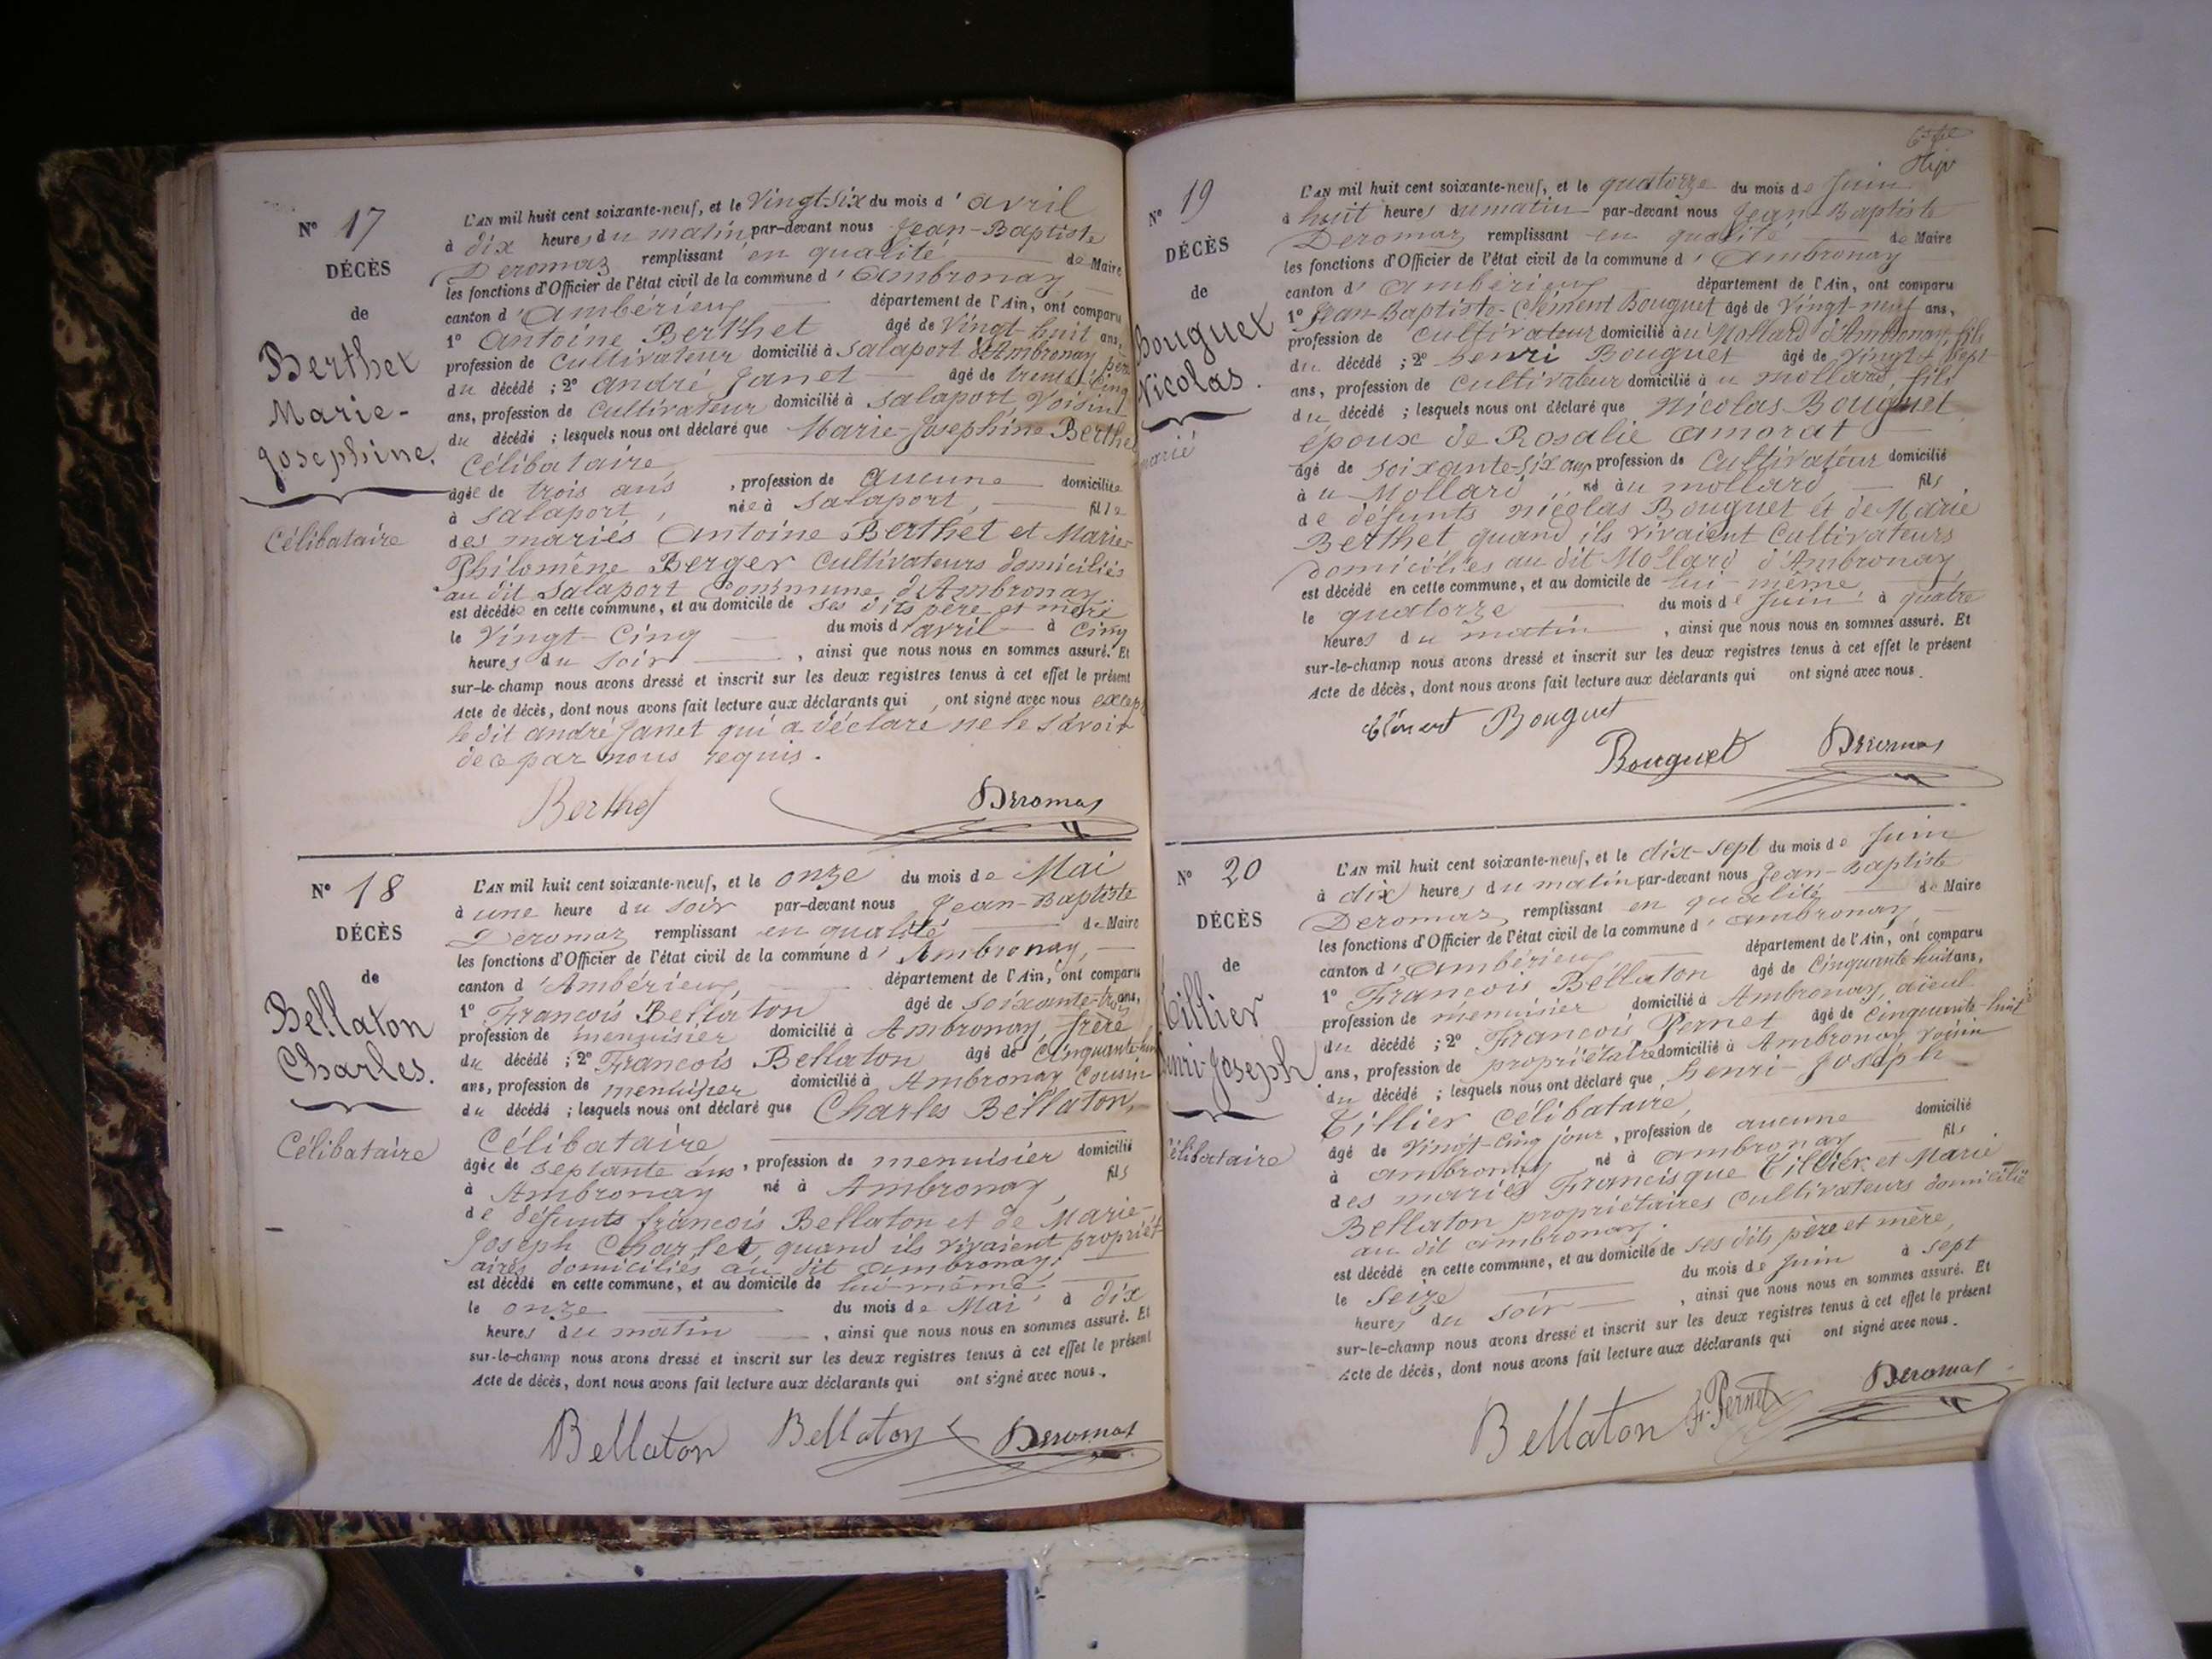 N° 17
DÉCÈS
de
Berthet
Marie-
Josephine.
Célibataire
L'AN mil huit cent soixante-neuf, et le Vingt six du mois d'avril
à dix heures du matin par-devant nous Jean-Baptiste
Deromas remplissant en qualité de Maire
les fonctions d'Officier de l'état civil de la commune d'Ambronay,
canton d'Ambérieux département de l'Ain, ont comparu
1° Antoine Berthet âgé de Vingt huit ans,
profession de Cultivateur domicilié à Salaport d'Ambronay,
du décédé ; 2° andré Janet âgé de trente Cinq
ans, profession de Cultivateur domicilié à Salaport, Voisin
du décédé ; lesquels nous ont déclaré que Marie-Josephine Berthe
Célibataire,
âgée de trois ans , profession de aucune domiciliée
à Salaport, née à Salaport, fille
des mariés Antoine Berthet et Marie-
Philomène Berger Cultivateurs domiciliés
au dit Salaport Commune d'Ambronay
est décédée en cette commune, et au domicile de ses dits père et mère
le Vingt-Cinq du mois d'avril à Cinq
heures du Soir , ainsi que nous nous en sommes assuré. Et
sur-le-champ nous avons dressé et inscrit sur les deux registres tenus à cet effet le présent
Acte de décès, dont nous avons fait lecture aux déclarants qui , ont signé avec nous excep
le dit andré Janet qui a déclaré ne le savoir
de ce par nous requis.
Berthet Deromas
N° 18
DÉCÈS
de
Bellaton
Charles.
Célibataire
L'AN mil huit cent soixante-neuf, et le onze du mois de Mai
à une heure du Soir par-devant nous Jean-Baptiste
Deromas remplissant en qualité de Maire
les fonctions d'Officier de l'état civil de la commune d'Ambronay,
canton d'Ambérieux, département de l'Ain, ont comparu
1° François Bellaton âgé de soixante-trois ans,
profession de menuisier domicilié à Ambronay, frère
du décédé ; 2° François Bellaton âgé de Cinquante-hui
ans, profession de menuisier domicilié à Ambronay Cousin
du décédé ; lesquels nous ont déclaré que Charles Bellaton,
Célibataire,
âgée de septante ans, profession de menuisier domicilié
à Ambronay né à Ambronay, fils
de défunts françois Bellaton et de Marie-
Joseph Charlet, quand ils vivaient propriét-
aires domiciliés au dit Ambronay;
est décédé en cette commune, et au domicile de lui-même,
le onze du mois de Mai à dix
heures du matin , ainsi que nous nous en sommes assuré. Et
sur-le-champ nous avons dressé et inscrit sur les deux registres tenus à cet effet le présent
Acte de décès, dont nous avons fait lecture aux déclarants qui ont signé avec nous.
Bellaton Bellaton Deromas
N° 19
DÉCÈS
de
Bouguet
Nicolas.
marié
L'AN mil huit cent soixante-neuf, et le quatorze du mois de Juin
à huit heures du matin par-devant nous Jean-Baptiste
Deromas remplissant en qualité de Maire
les fonctions d'Officier de l'état civil de la commune d'Ambronay
canton d'Ambérieux département de l'Ain, ont comparu
1° Jean-Baptiste-Clément Bouguet âgé de Vingt-neuf ans,
profession de Cultivateur domicilié au Mollard d'Ambronay, fils
du décédé ; 2° henri Bouguet âgé de Vingt sept
ans, profession de Cultivateur domicilié à u mollard, fils
du décédé ; lesquels nous ont déclaré que Nicolas Bouguet
époux de Rosalie Amorat
âgé de soixante-six ans, profession de Cultivateur domicilié
à u Mollard, né au mollard, fils
de défunts nicolas Bouguet et de Marie
Berthet quand ils vivaient Cultivateurs
domiciliés au dit Mollard d'Ambronay,
est décédé en cette commune, et au domicile de lui-même
le quatorze du mois de Juin à quatre
heures du matin , ainsi que nous nous en sommes assuré. Et
sur-le-champ nous avons dressé et inscrit sur les deux registres tenus à cet effet le présent
Acte de décès, dont nous avons fait lecture aux déclarants qui ont signé avec nous.
Clément Bouguet
Bouguet Deromas
N° 20
DÉCÈS
de
Tillier
henri-Joseph.
Célibataire
L'AN mil huit cent soixante-neuf, et le dix-sept du mois de Juin
à dix heures du matin par-devant nous Jean-Baptiste
Deromas remplissant en qualité de Maire
les fonctions d'Officier de l'état civil de la commune d'Ambronay,
canton d'Ambérieux département de l'Ain, ont comparu
1° François Bellaton âgé de Cinquante-huit ans,
profession de menuisier domicilié à Ambronay, aïeul
du décédé ; 2° François Pernet âgé de Cinquante-huit
ans, profession de propriétaire domicilié à Ambronay Voisin
du décédé ; lesquels nous ont déclaré que henri-Joseph
Tillier Célibataire,
âgé de Vingt-Cinq jour, profession de aucune domicilié
à Ambronay né à Ambronay fils
des mariés Francisque Tillier et Marie
Bellaton propriétaires Cultivateurs domicilié
au dit Ambronay.
est décédé en cette commune, et au domicile de ses dits père et mère,
le Seize du mois de Juin à sept
heures du Soir , ainsi que nous nous en sommes assuré. Et
sur-le-champ nous avons dressé et inscrit sur les deux registres tenus à cet effet le présent
Acte de décès, dont nous avons fait lecture aux déclarants qui ont signé avec nous.
Bellaton F. Pernet Deromas